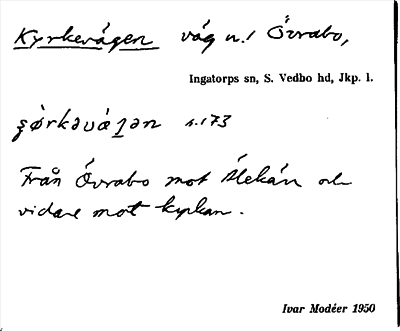 Kyrkevägen väg n.! Övrabo,
Ingatorps sn, S. Vedbo hd, Jkp. l.
s.173
Från Övrabo mot Älekán och
vidare mot kyrkan.
Ivar Modéer 1950